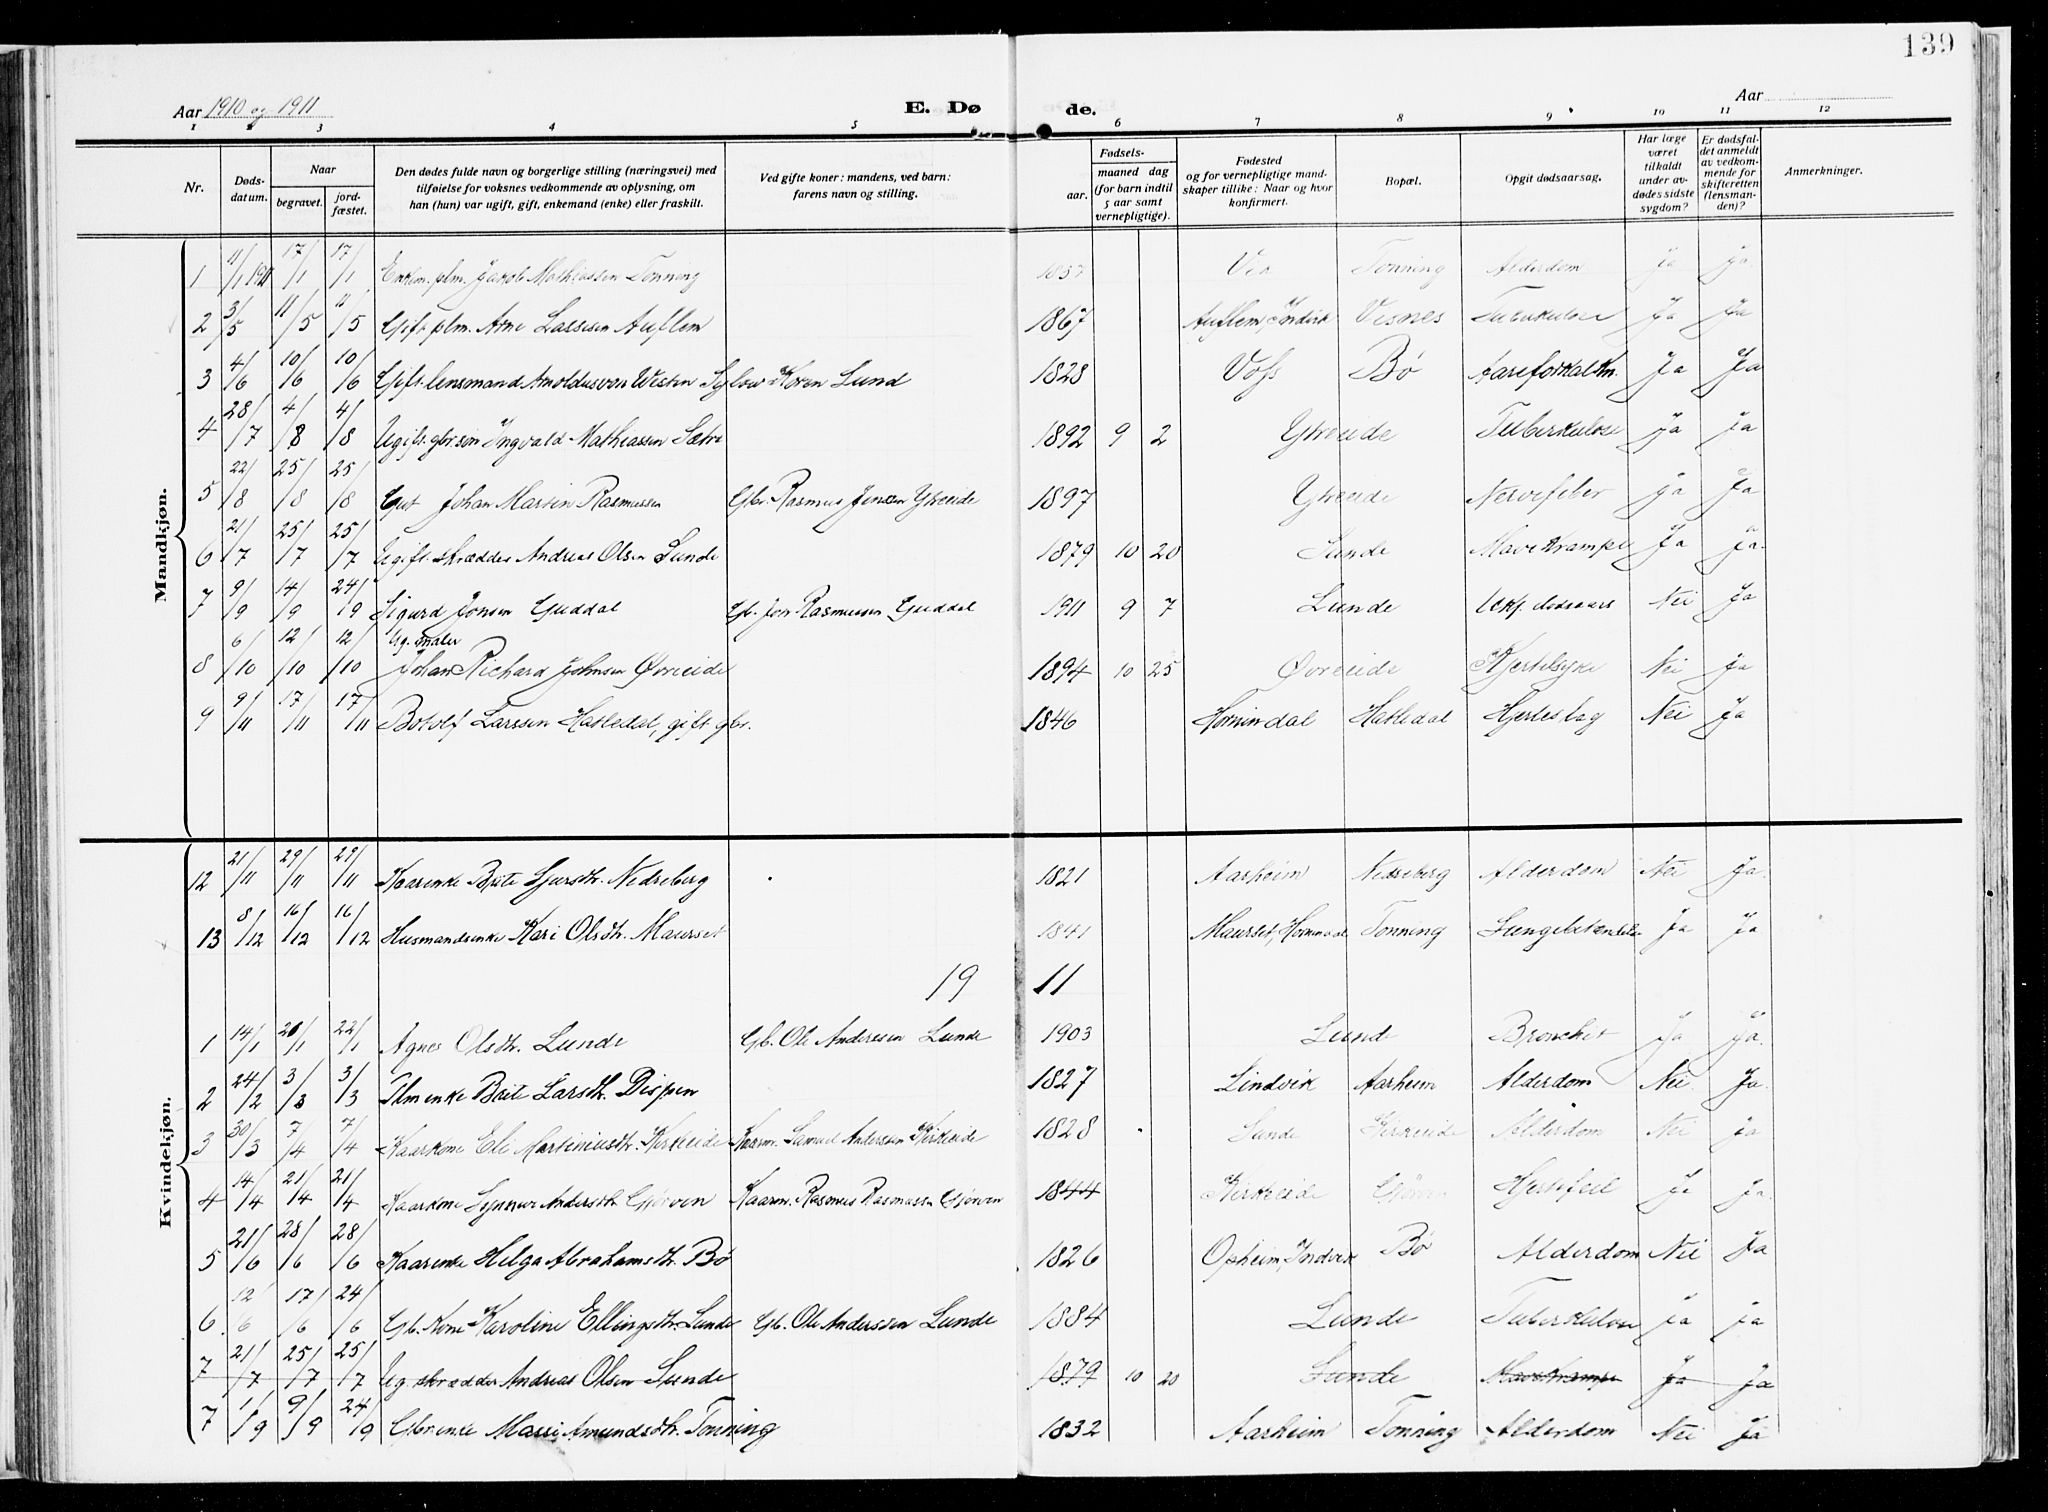 139
Aar 1910 og 1911
E. Dø
de.
Aar
1 2 3 4 5 6 7 8 9 10 11 12
Nr.
Døds-datum.
Naar
begravet.
jord-fæstet.
Den dødes fulde navn og borgerlige stilling (næringsvei) med
tilføielse for voksnes vedkommende av oplysning, om
han (hun) var ugift, gift, enkemand (enke) eller fraskilt.
Ved gifte koner: mandens, ved barn:
farens navn og stilling.
Fødsels-
aar.
maaned dag
(for barn indtil
5 aar samt
vernepligtige).
Fødested
og for vernepligtige mand-
skaper tillike: Naar og hvor
konfirmert.
Bopæl.
Opgit dødsaarsag.
Har læge
været
tilkaldt
under av-
dødes sidste
sygdom?
Er dødsfal-
det anmeldt
av vedkom-
mende for
skifteretten
(lensman-
den)?
Anmerkninger.
Mandkjøn.
1 11/1 1911 17/1 17/1 Enkem. plm. Jakob Mathiassen Tonning 1837 Vik Tonning Alderdom Ja Ja
2 3/5 11/5 11/5 Gift plm. Arne Lassesen Auflem 1867 Auflem, Indvik Visnes Tuberkulose Ja Ja
3 4/6 10/6 10/6 Gift lensmand Arnoldus von Westen Sylow Koren Lund 1828 Voss Bø Aareforkalkn. Ja Ja
4 28/7 4/8 4/8 Ugift gbr.søn Ingvald Mathiassen Sætre 1892 9 2 Ytreeide Tuberkulose Ja Ja
5 22/8 25/8 25/8 Gut Johan Martin Rasmussen Gbr. Rasmus Jensen Ytreeide 1897 Ytreeide Nervefeber Ja Ja
6 21/7 25/7 25/7 Ugift skrædder Andreas Olsen Sunde 1879 10 20 Sunde Mavekrampe Ja Ja
7 9/9 14/9 24/9 Sigurd Jonsen Guddal Gb. Jon Rasmussen Guddal 1911 9 7 Lunde Ukj. dødsaars Nei Ja
8 6/10 12/10 12/10 Ug. maler Johan Richard Johnsen Øvreeide 1894 10 25 Øvreeide Kjertelsyke Nei Ja
9 9/11 17/11 17/11 Botolf Larssen Hakledal, gift gbr. 1846 Hornindal Hakledal Hjerteslag Nei Ja
Kvindekjøn.
12 21/11 29/11 29/11 Kaarenke Brite Sjursdtr. Nedreberg 1821 Aarheim Nedreberg Alderdom Nei Ja
13 8/12 16/12 16/12 Husmandsenke Kari Olsdtr. Maurset 1841 Maurset, Tonning Lungebetændelse Ja Ja
19 11
1 14/1 20/1 22/1 Agnes Olsdtr. Lunde Gb. Ole Anderssen Lunde 1903 Lunde Bronchit Ja Ja
2 24/2 3/3 3/3 Plmenke Brite Larsdtr. Dispen 1827 Lindvik Aarheim Alderdom Nei Ja
3 30/3 7/4 7/4 Kaarkone Eli Martiniusdtr. Kirkeide Kaarm. Samuel Andersen Kirkeide 1828 Sunde Kirkeide Alderdom Nei Ja
4 14/4 21/4 21/4 Kaarkone Synnøve Andersdtr. Gjørven Kaarm. Rasmus Rasmussen Gjørven 1844 Kirkeide Gjørven Hjertefeil Ja Ja
5 21/6 28/6 28/6 Kaarenke Helga Abrahamsdtr. Bø 1826 Opheim, Indvik Bø Alderdom Nei Ja
6 12/6 17/6 24/6 Gb. kone Karoline Ellingsdtr. Lunde Gb. Ole Anderssen Lunde 1884 Lunde Tuberkulose Ja Ja
7 21/7 25/7 25/7 Ug. skrædder Andreas Olsen Sunde 1879 10 20 Sunde Mavekrampe Ja Ja
7 1/9 9/9 24/9 Gbr.enke Massi Amundsdtr. Tonning 1832 Aarheim Tonning Alderdom Nei Ja